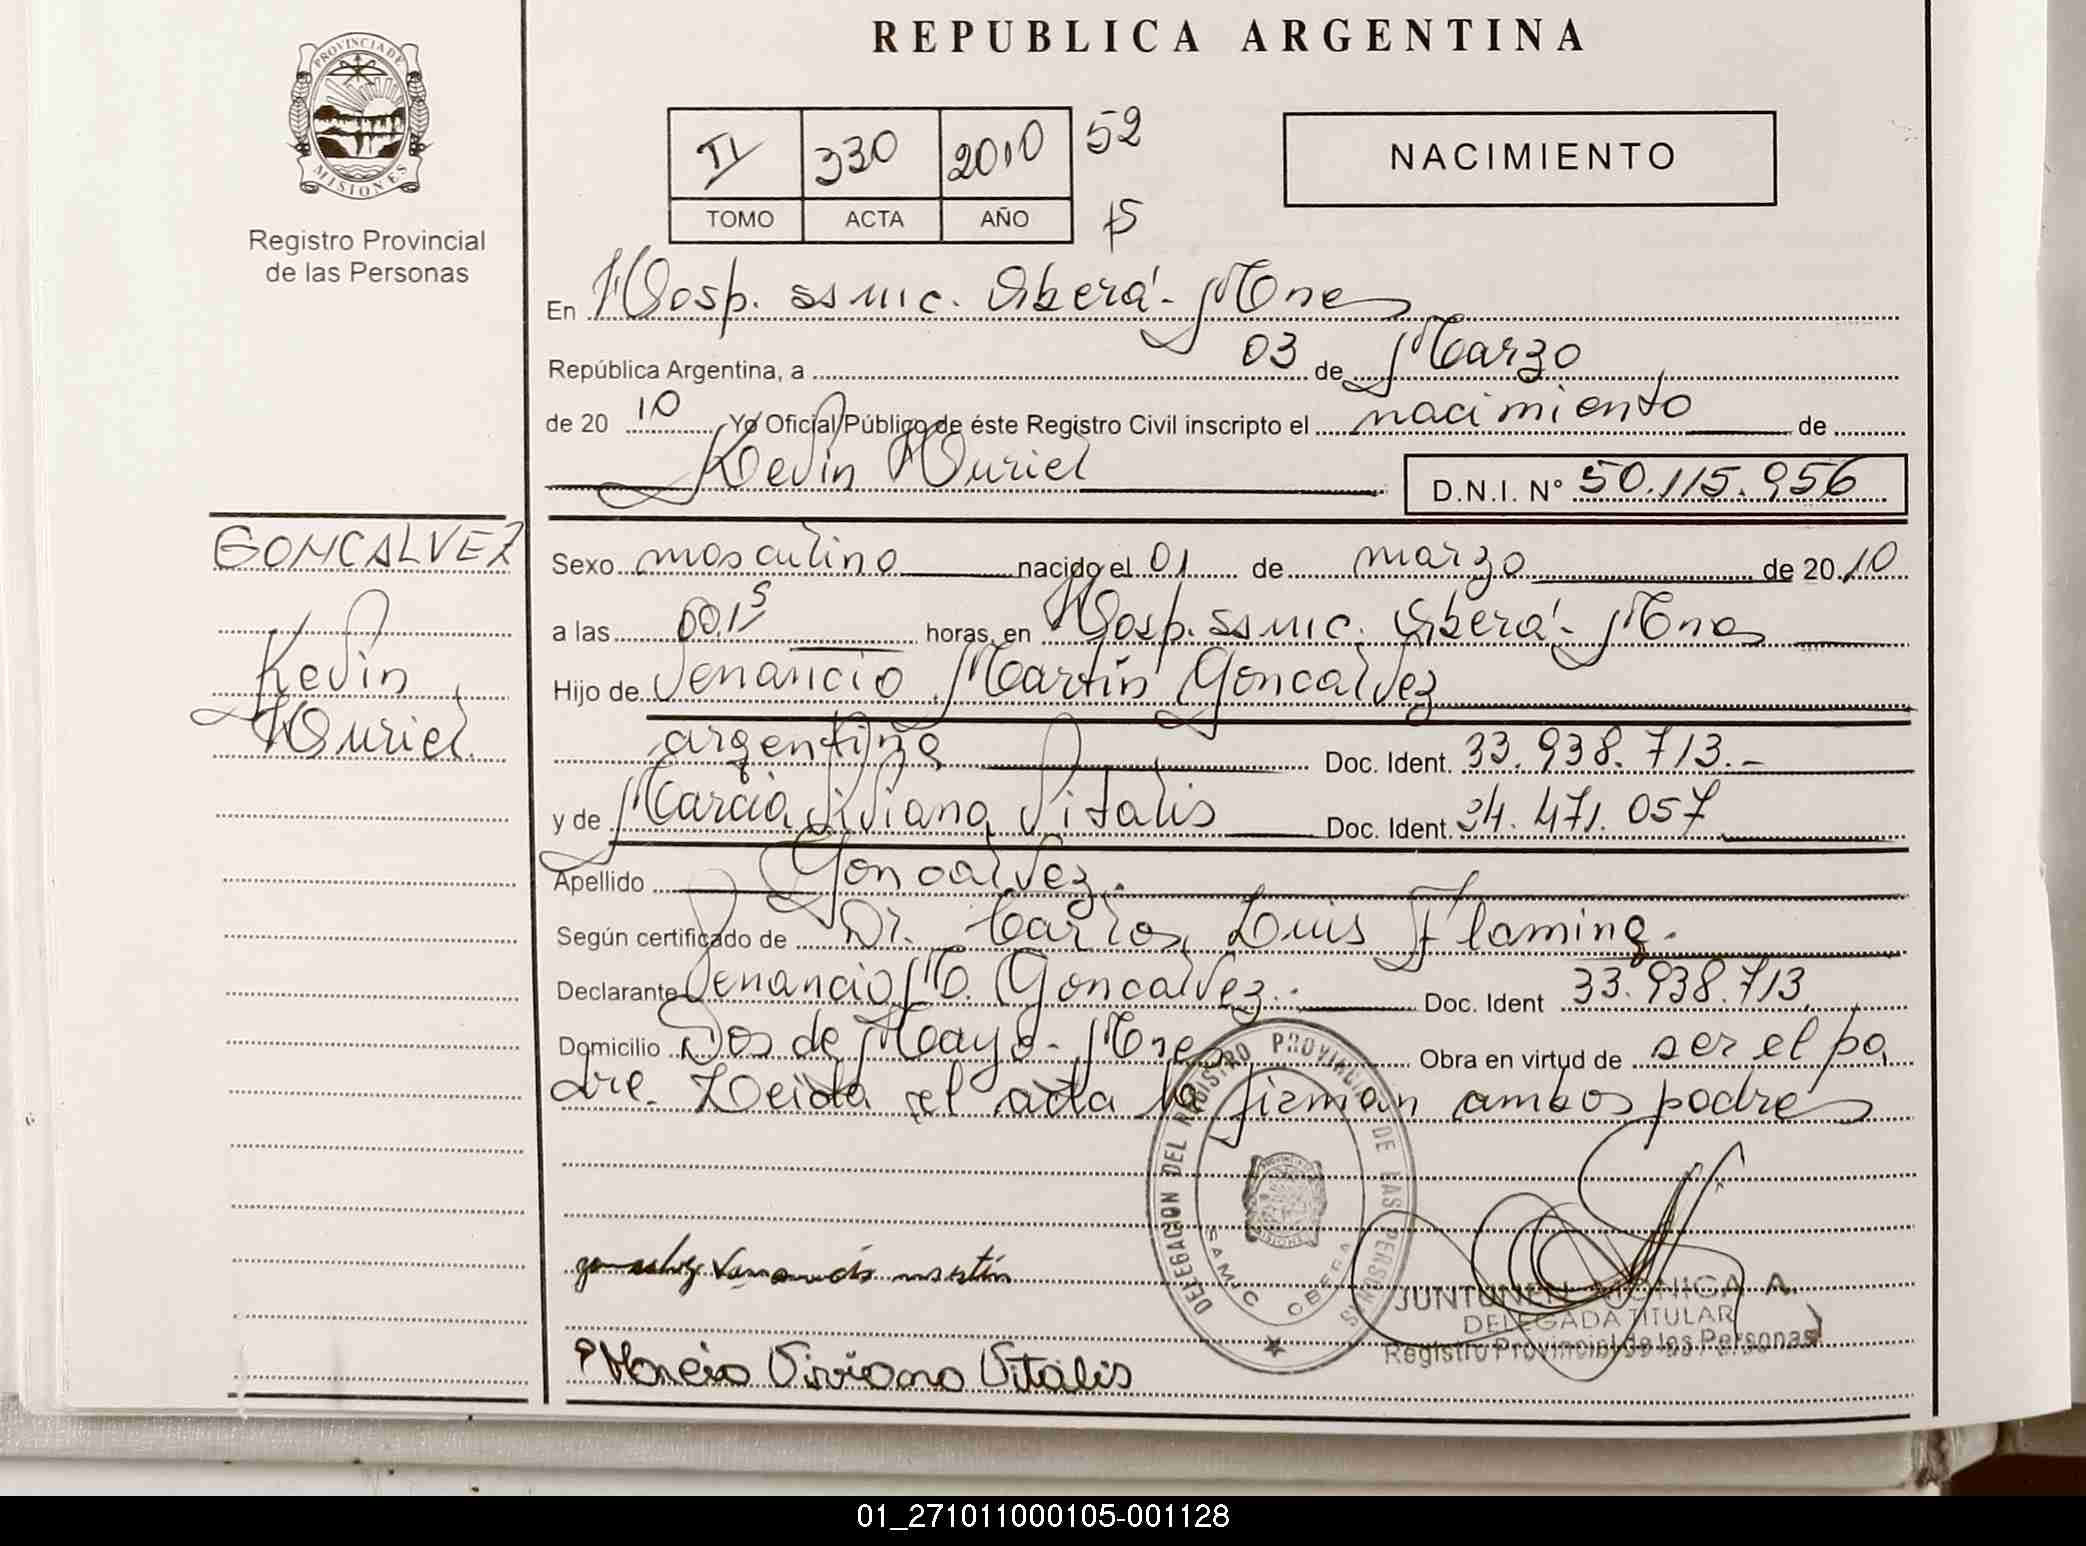 REPUBLICA ARGENTINA
PROVINCIA DE
MISIONES
Registro Provincial
de las Personas
II 330 2010 52
TOMO ACTA AÑO
NACIMIENTO
En Hosp. ssmic. Oberá - Mnes
República Argentina, a 03 de Marzo
de 20 10 Yo Oficial Público de éste Registro Civil inscripto el nacimiento de
Kevin Uriel D.N.I. N° 50.115.956
GONCALVEZ
Kevin
Uriel
Sexo masculino nacido el 01 de marzo de 20 10
a las 00,15 horas, en Hosp. ssmic. Oberá - Mnes
Hijo de Venancio Martín Goncalvez
argentina Doc. Ident. 33.938.713.-
y de Marcia Viviana Vitalis Doc. Ident. 34.471.057
Apellido Goncalvez.
Según certificado de Dr. Carlos Luis Flaming.
Declarante Venancio M. Goncalvez.- Doc. Ident 33.938.713.
Domicilio Dos de Mayo - Mnes Obra en virtud de ser el pa
dre. Leida el acta la firman ambos padres
DELEGACION DEL REGISTRO PROVINCIAL DE LAS PERSONAS
SAMIC OBERA
Venancio martín
JUNTUNEN MONICA A.
DELEGADA TITULAR
Registro Provincial de las Personas
Marcia Viviana Vitalis
01_271011000105-001128